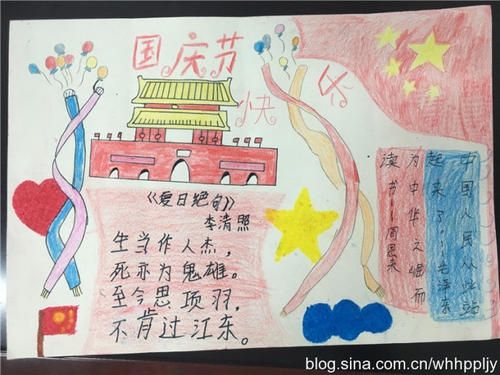 国庆节
快乐
《夏日绝句》
李清照
生当作人杰，
死亦为鬼雄。
至今思项羽，
不肯过江东。
中国人民从此站
起来了！—毛泽东
为中华之崛而
读书—周恩来
blog.sina.com.cn/whhppljy